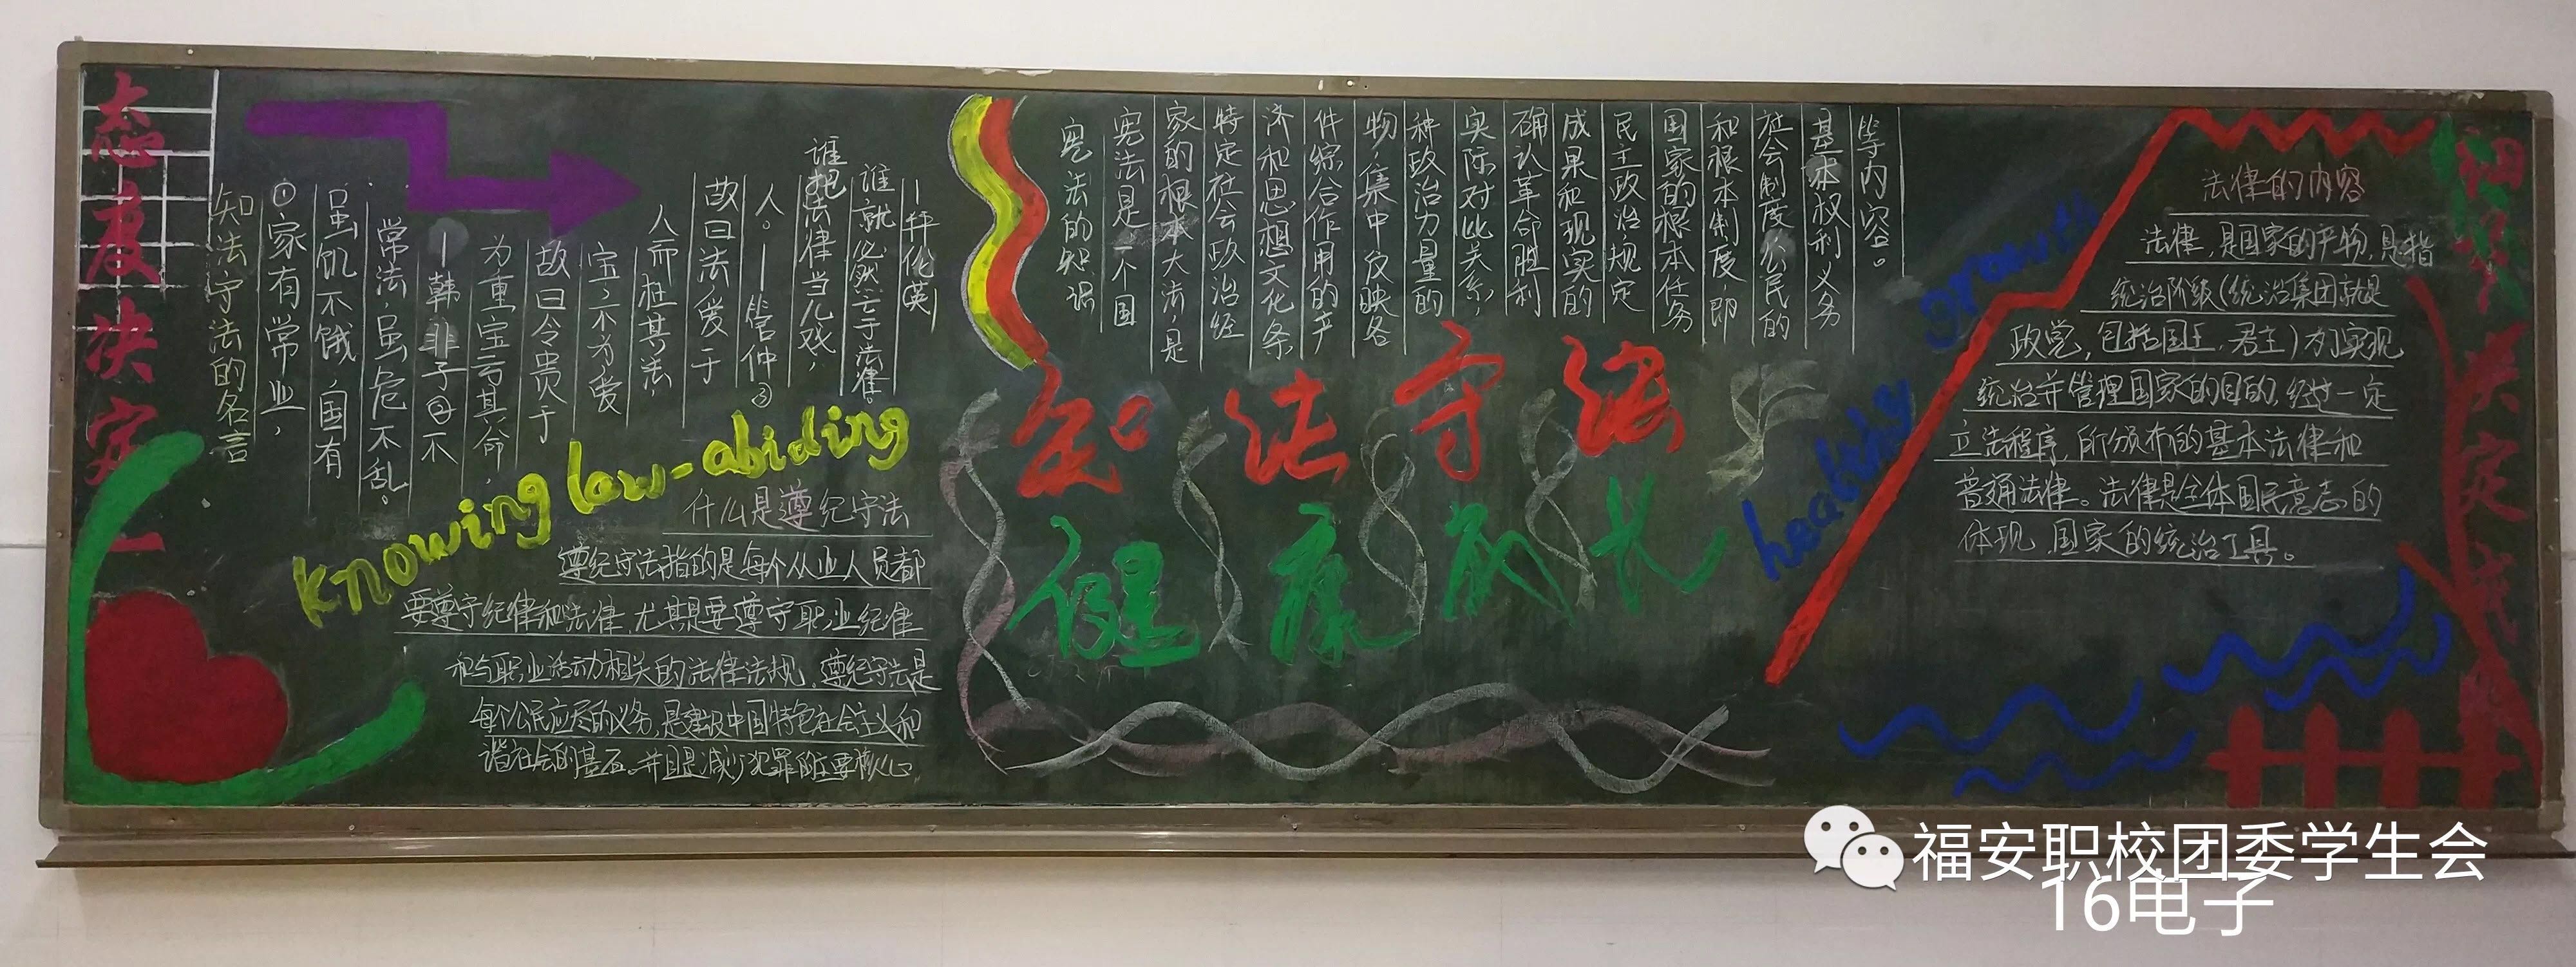 态度决定一
知法守法的名言
①家有常业，
虽饥不饿，国有
常法，虽危不乱。
—韩非子②不
为重宝亏其命，
故曰令贵于
宝；不为爱
人而枉其法，
故曰法爱于
人。——管仲③
谁把法律当儿戏，
谁就必然亡于法律。
—拜伦英
knowing law-abiding
什么是遵纪守法
遵纪守法指的是每个从业人员都
要遵守纪律和法律，尤其是要遵守职业纪律
和与职业活动相关的法律法规，遵纪守法是
每个公民应尽的义务，是建设中国特色社会主义和
谐社会的基石。并且是减少犯罪的主要核心
宪法的知识
宪法是一个国
家的根本大法，是
特定社会政治经
济和思想文化条
件综合作用的产
物，集中反映各
种政治力量的
实际对比关系，
确认革命胜利
成果和现实的
民主政治，规定
国家的根本任务
和根本制度，即
社会制度、公民的
基本权利义务
等内容。
知法守法
健康成长
healthy
growth
法律的内容
法律，是国家的产物，是指
统治阶级（统治集团就是
政党，包括国王，君主）为了实现
统治并管理国家的目的，经过一定
立法程序，所颁布的基本法律和
普通法律。法律是全体国民意志的
体现，国家的统治工具。
细
决定
福安职校团委学生会
16电子